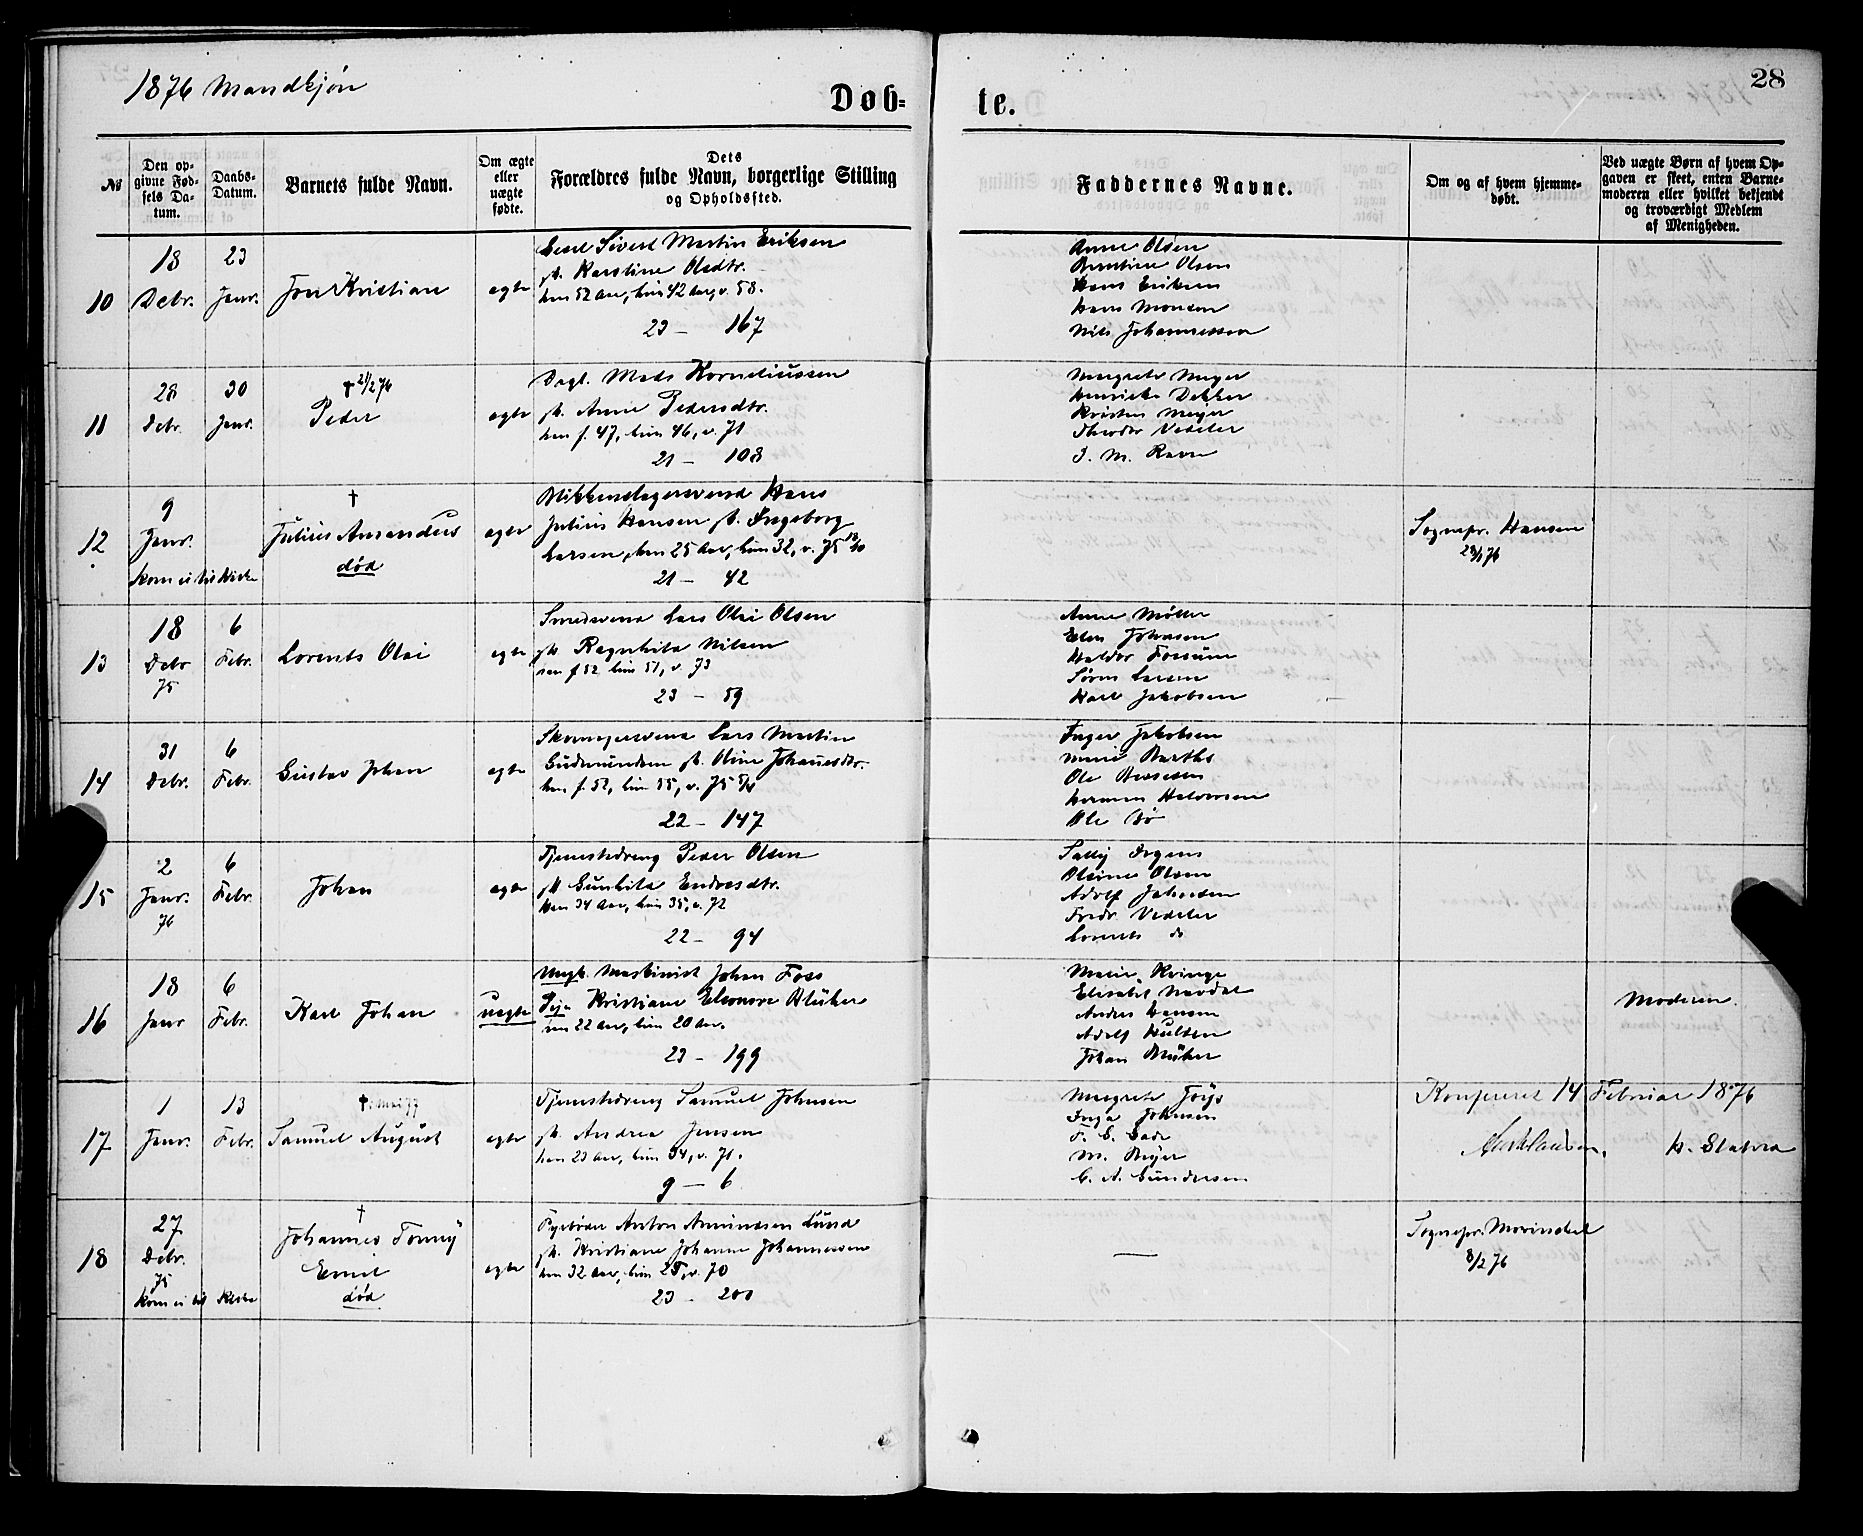 1876 Mandkjøn
Døb=
te.
28
№
Den op-
givne Fød-
sels Da-
tum.
Daabs-
Datum.
Barnets fulde Navn.
Om ægte
eller
uægte
fødte.
Dets
Forældres fulde Navn, borgerlige Stilling
og Opholdssted.
Faddernes Navne.
Om og af hvem hjemme-
døbt.
Ved uægte Børn af hvem Op-
gaven er skeet, enten Barne-
moderen eller hvilket bekjendt
og troværdigt Medlem
af Menigheden.
10
18
Debr.
23
Janr.
Jon Kristian
egte
Sivert Martin Eriksen
Karstine Olsdtr.
han 52 Aar, hun 42 Aar, v. 58.
23 - 167
Anne Olsen
Berntine Olsen
Hans Eriksen
Hans Monsen
Nils Johannessen
11
28
Debr.
30
Janr.
† 21/2 76
Peder
egte
Dagl. Mads Korneliussen
Anne Pedersdtr.
han f. 47, hun 46, v. 71
21 - 108
Margrete Meyer
Henrikke Dekker
Kristen Meyer
Theodor Vedeler
J. M. Ravn
12
9
Janr.
Kom ei til Kirke
†
Julius Amandus
død
egte
Blikkenslagersvend Hans
Julius Hansen Ingeborg
Larsen, han 25 Aar, hun 32, v. 75
21 - 42
Sognepr. Hansen
13
18
Debr
75
6
Febr.
Lorents Olai
egte
Smedsvend Lars Olai Olsen
Ragnhild Nilsen
han f 52 hun 51, v. 73
23 - 59
Anne Møller
Elen Johnsen
Haldor Fossum
Søren Larsen
Karl Jakobsen
14
31
Debr.
6
Febr.
Gustav Johan
egte
Skomagersvend Lars Martin
Gudmundsen Oline Johannesdtr.
han f. 52, hun 55, v. 75
22 - 147
Inger Jakobsen
Marie Barths
Ole
Herman Halvorsen
Ole Bø
15
2
Janr.
76
6
Febr.
Johan
egte
Tjenestedreng Peder Olsen
Gunhild Endresdtr.
Han 34 Aar, hun 35, v. 72
22 - 94
Sally Irgens
Olsine Olsen
Adolf
Fredr. Vedeler
Lorents do
16
18
Janr
6
Febr.
Karl Johan
uegte
Ungk. Maskinist Johan Foss
Pige Kristiane Eleonore Blüher
han 22 Aar, hun 20 Aar.
23 - 199
Marie Kvinge
Elisabet Nævdal
Anders Hansen
Adolf Hulsen
Johan Blüher
Moderen.
17
1
Janr.
13
Febr.
Samuel August
egte
Tjenestedreng Samuel Johnsen
Andrea Jensen
han 23 Aar, hun 34, v. 71.
9 - 6
Margrete Joys
Inga Johnsen
F. G. Gade
M. Beyer
C. A. Gundersen
Konfereret 14 Februar 1876
18
27
Debr.
75
Kom ei til Kirke
†
Johannes Tonny
Emil
død
egte
Fyrbøder Anton Amundsen Lund
Kristiane Johanne Johannessen
han 32 Aar, hun 25, v. 70
23 - 200
—
Sognepr. Morinchel
8/2 76